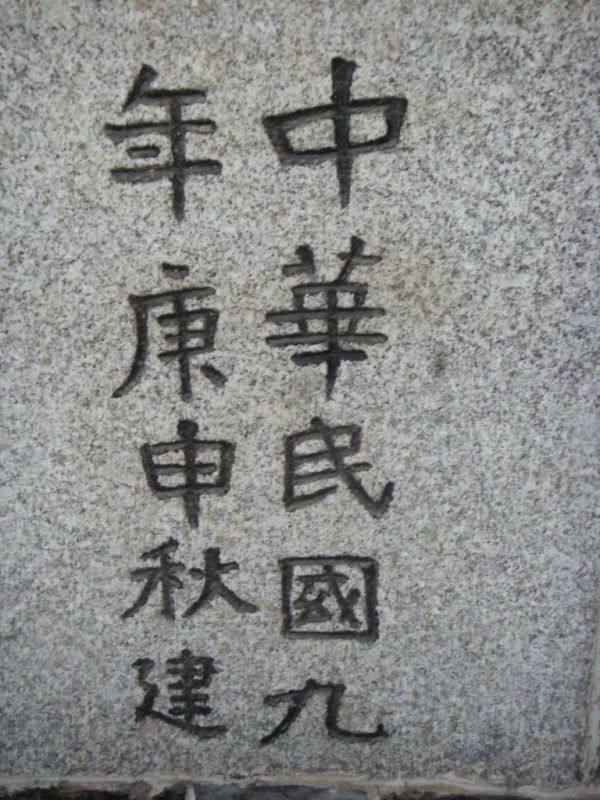 中華民國九
年庚申秋建